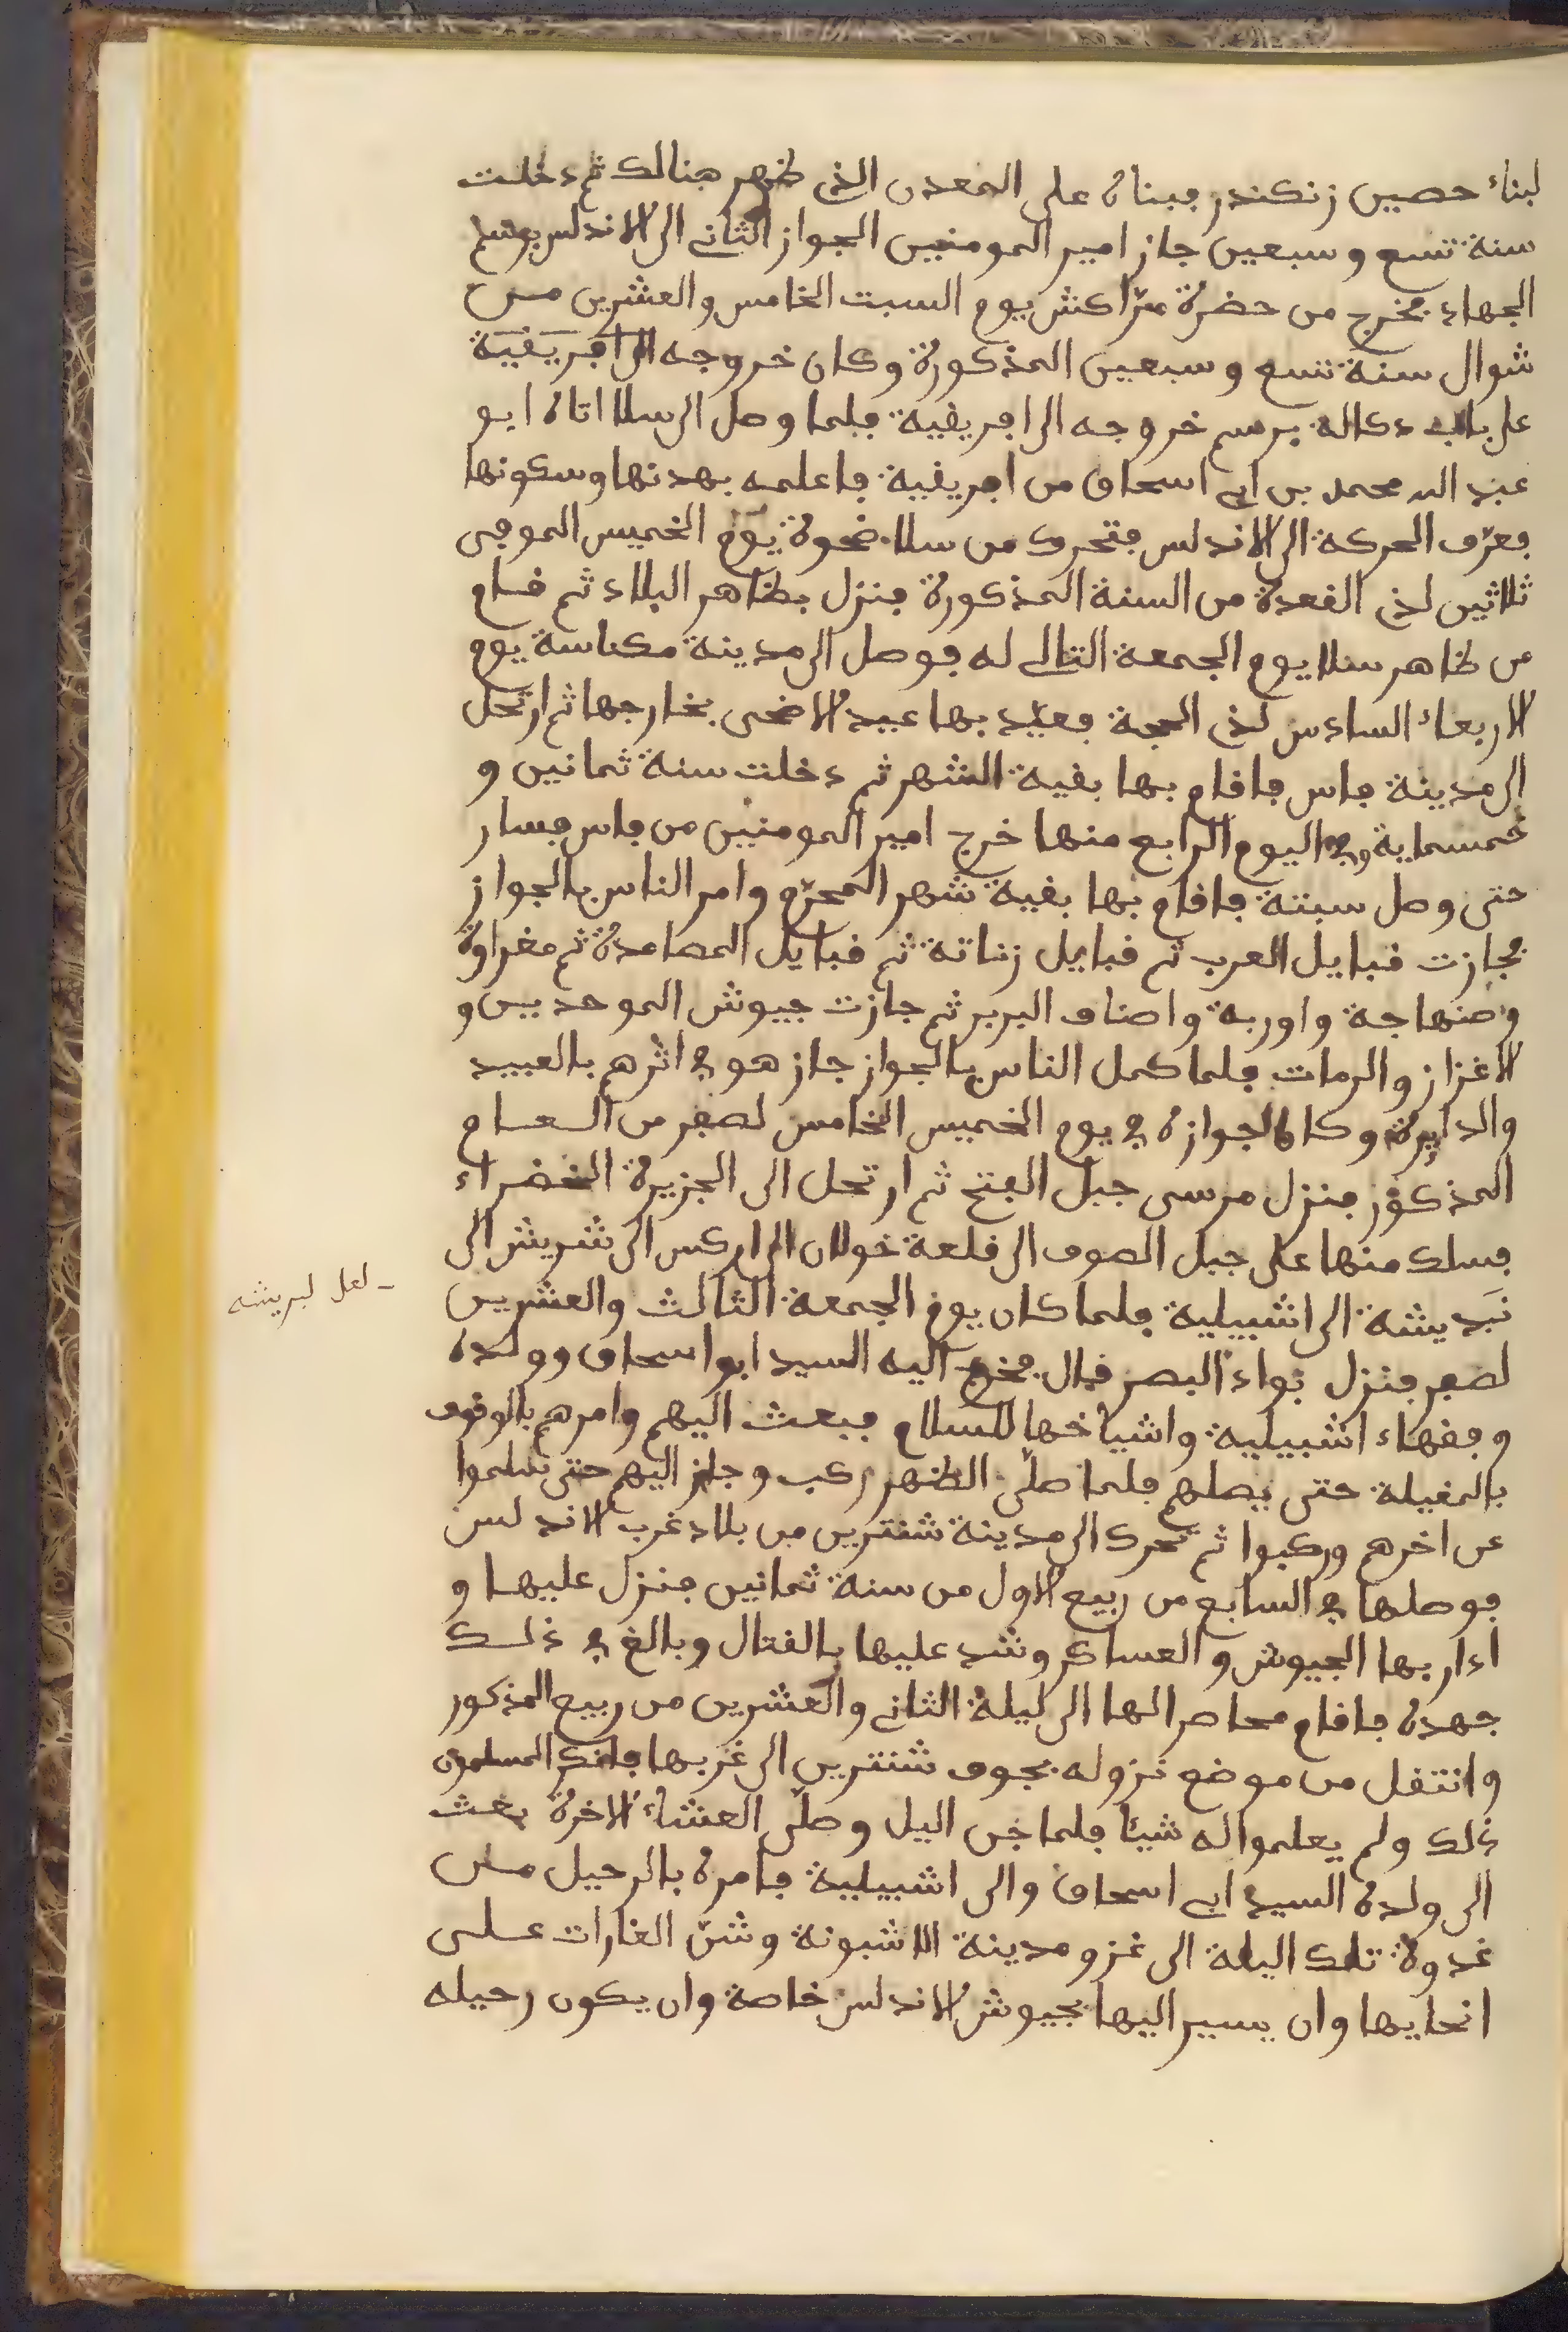 لبناء حصين زنكندر فبناه على المعدن الذي ظهر هنالك ثم دخلت
سنة تسع وسبعين جاز امير المومنين الجواز الثاني الى الاندلس برسم
الجهاد فخرج من حضرة مرّاكش يوم السبت الخامس والعشرين من
شوال سنة تسع وسبعين المذكورة وكان خروجه الى افريقية
على باب دكالة برسم خروجه الى افريقية فلما وصل الى سلا اتاه ابو
عبد الله محمد بن ابي اسحاق من افريقية فاعلمه بهدنها وسكونها
فعرّف الحركة الى الاندلس فتحرك من سلا ضحوة يوم الخميس الموفى
ثلاثين لذي القعدة من السنة المذكورة فنزل بظاهر البلاد ثم قام
من ظاهر سلا يوم الجمعة التالي له فوصل الى مدينة مكناسة يوم
الاربعاء السادس لذي الحجة فعيّد بها عيد الاضحى بخارجها ثم ارتحل
الى مدينة فاس فاقام بها بقية الشهر ثم دخلت سنة ثمانين و
خمسماية وفي اليوم الرابع منها خرج امير المومنين من فاس فسار
حتى وصل سبتة فاقام بها بقية شهر المحرّم وامر الناس بالجواز
فجازت قبايل العرب ثم قبايل زناتة ثم قبايل المصامدة ثم مغراوة
وصنهاجة واوربة واصناف البربر ثم جازت جيوش الموحدين و
الاغزاز والرمات فلما كمل الناس بالجواز جاز هو في اثرهم بالعبيد
والدايرة وكان الجوازه في يوم الخميس الخامس لصفر من العام
المذكور فنزل مرسى جبل الفتح ثم ارتحل الى الجزيرة الخضراء
فسلك منها على جبل الصوف الى قلعة خولان الى اركس الى شريش الى
نبديشة الى اشبيلية فلما كان يوم الجمعة الثالث والعشرين
لصفر فنزل بواد البصر قال فخرج اليه السيد ابو اسحاق وولده
وفقهاء اشبيلية واشياخها للسلام فبعث اليهم وامرهم بالوقوف
بالمفيلة حتى يصلهم فلما صلّى الظهر ركب وجاز اليهم حتى سلموا
عن اخرهم وركبوا ثم تحرك الى مدينة شنترين من بلاد غرب الاندلس
فوصلها في السابع من ربيع الاول من سنة ثمانين فنزل عليها و
ادار بها الجيوش والعساكر وشد عليها بالقتال وبالغ في ذلك
جهده فاقام محاصرا لها الى ليلة الثاني والعشرين من ربيع المذكور
وانتقل من موضع نزوله بجوف شنترين الى غربها فانكر المسلمون
ذلك ولم يعلموا له شيئا فلما جن اليل وصلّى العشاء الاخرة بعث
الى ولده السيد ابي اسحاق والى اشبيلية فامره بالرحيل من
غدوة تلك اليلة الى غزو مدينة الاشبونة وشنّ الغارات على
انحايها وان يسير اليها بجيوش الاندلس خاصة وان يكون رحيله
- لعل لبريشه